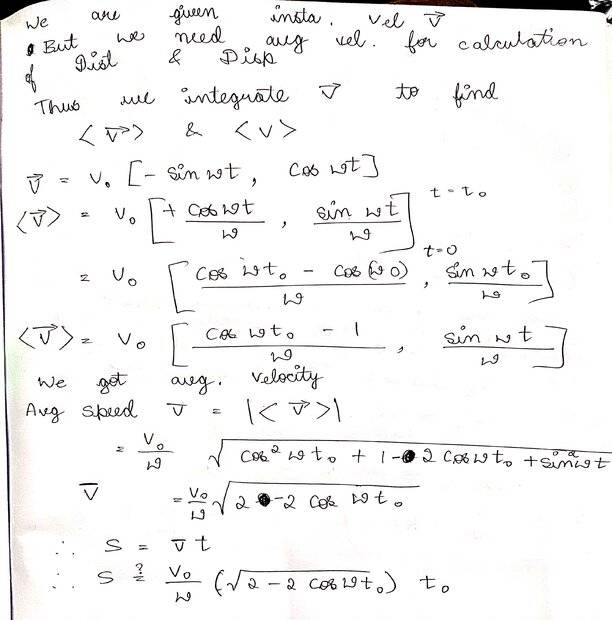 We are given insta. vel v⃗
But we need avg vel. for calculation
of Dist & Disp
Thus we integrate v⃗ to find
<v⃗> & <v>
v⃗ = v₀ [- sin ωt , cos ωt]
<v⃗> = v₀ [+ cos ωt / ω , sin ωt / ω] t = t₀ t=0
= v₀ [(cos ωt₀ - cos (ω0)) / ω , sin ωt₀ / ω]
<v⃗> = v₀ [(cos ωt₀ - 1) / ω , sin ωt / ω]
We got avg. velocity
Avg speed v̅ = |<v⃗>|
= v₀/ω √(cos² ωt₀ + 1 - 2 cos ωt₀ + sin² ωt
v̅ = v₀/ω √(2 - 2 cos ωt₀)
∴ s = v̅ t
∴ s ?= v₀/ω (√(2 - 2 cos ωt₀)) t₀